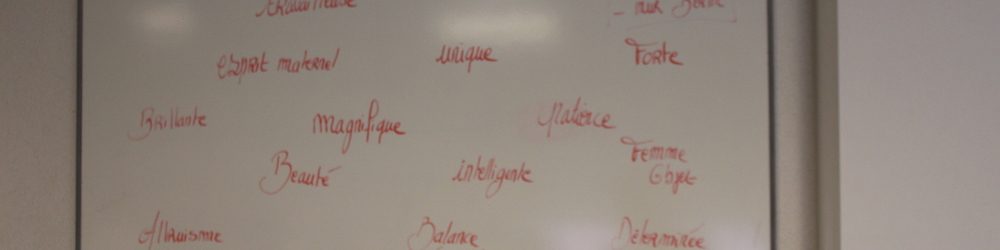 Travailleuse
esprit maternel unique Forte
Brillante magnifique Patience
Beauté intelligente Femme
Objet
Altruisme Balance Déterminée